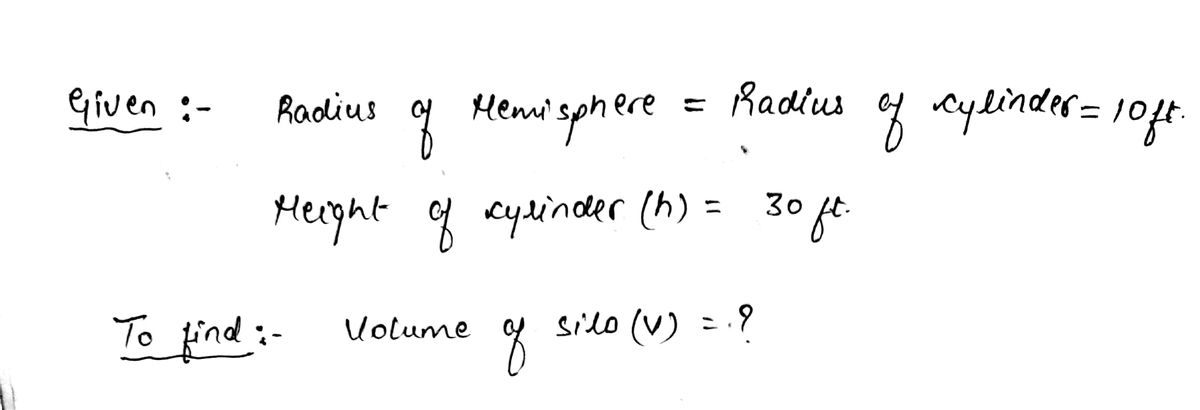 Given :- Radius of Hemisphere = Radius of cylinder = 10ft.
Height of cylinder (h) = 30 ft.
To find :- Volume of silo (V) = ?